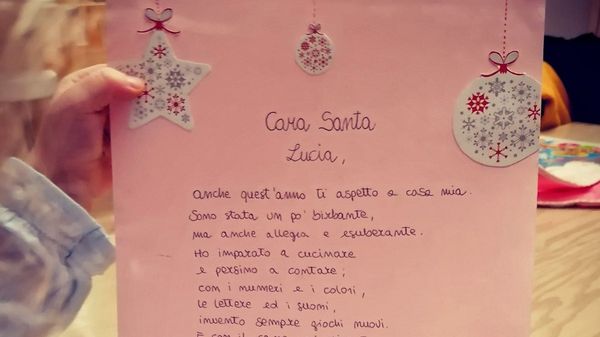 Cara Santa
Lucia,
anche quest'anno ti aspetto a casa mia.
Sono stata un po' birbante,
ma anche allegra e esuberante.
Ho imparato a cucinare
e persino a contare;
con i numeri e i colori,
le lettere ed i suoni,
invento sempre giochi nuovi.